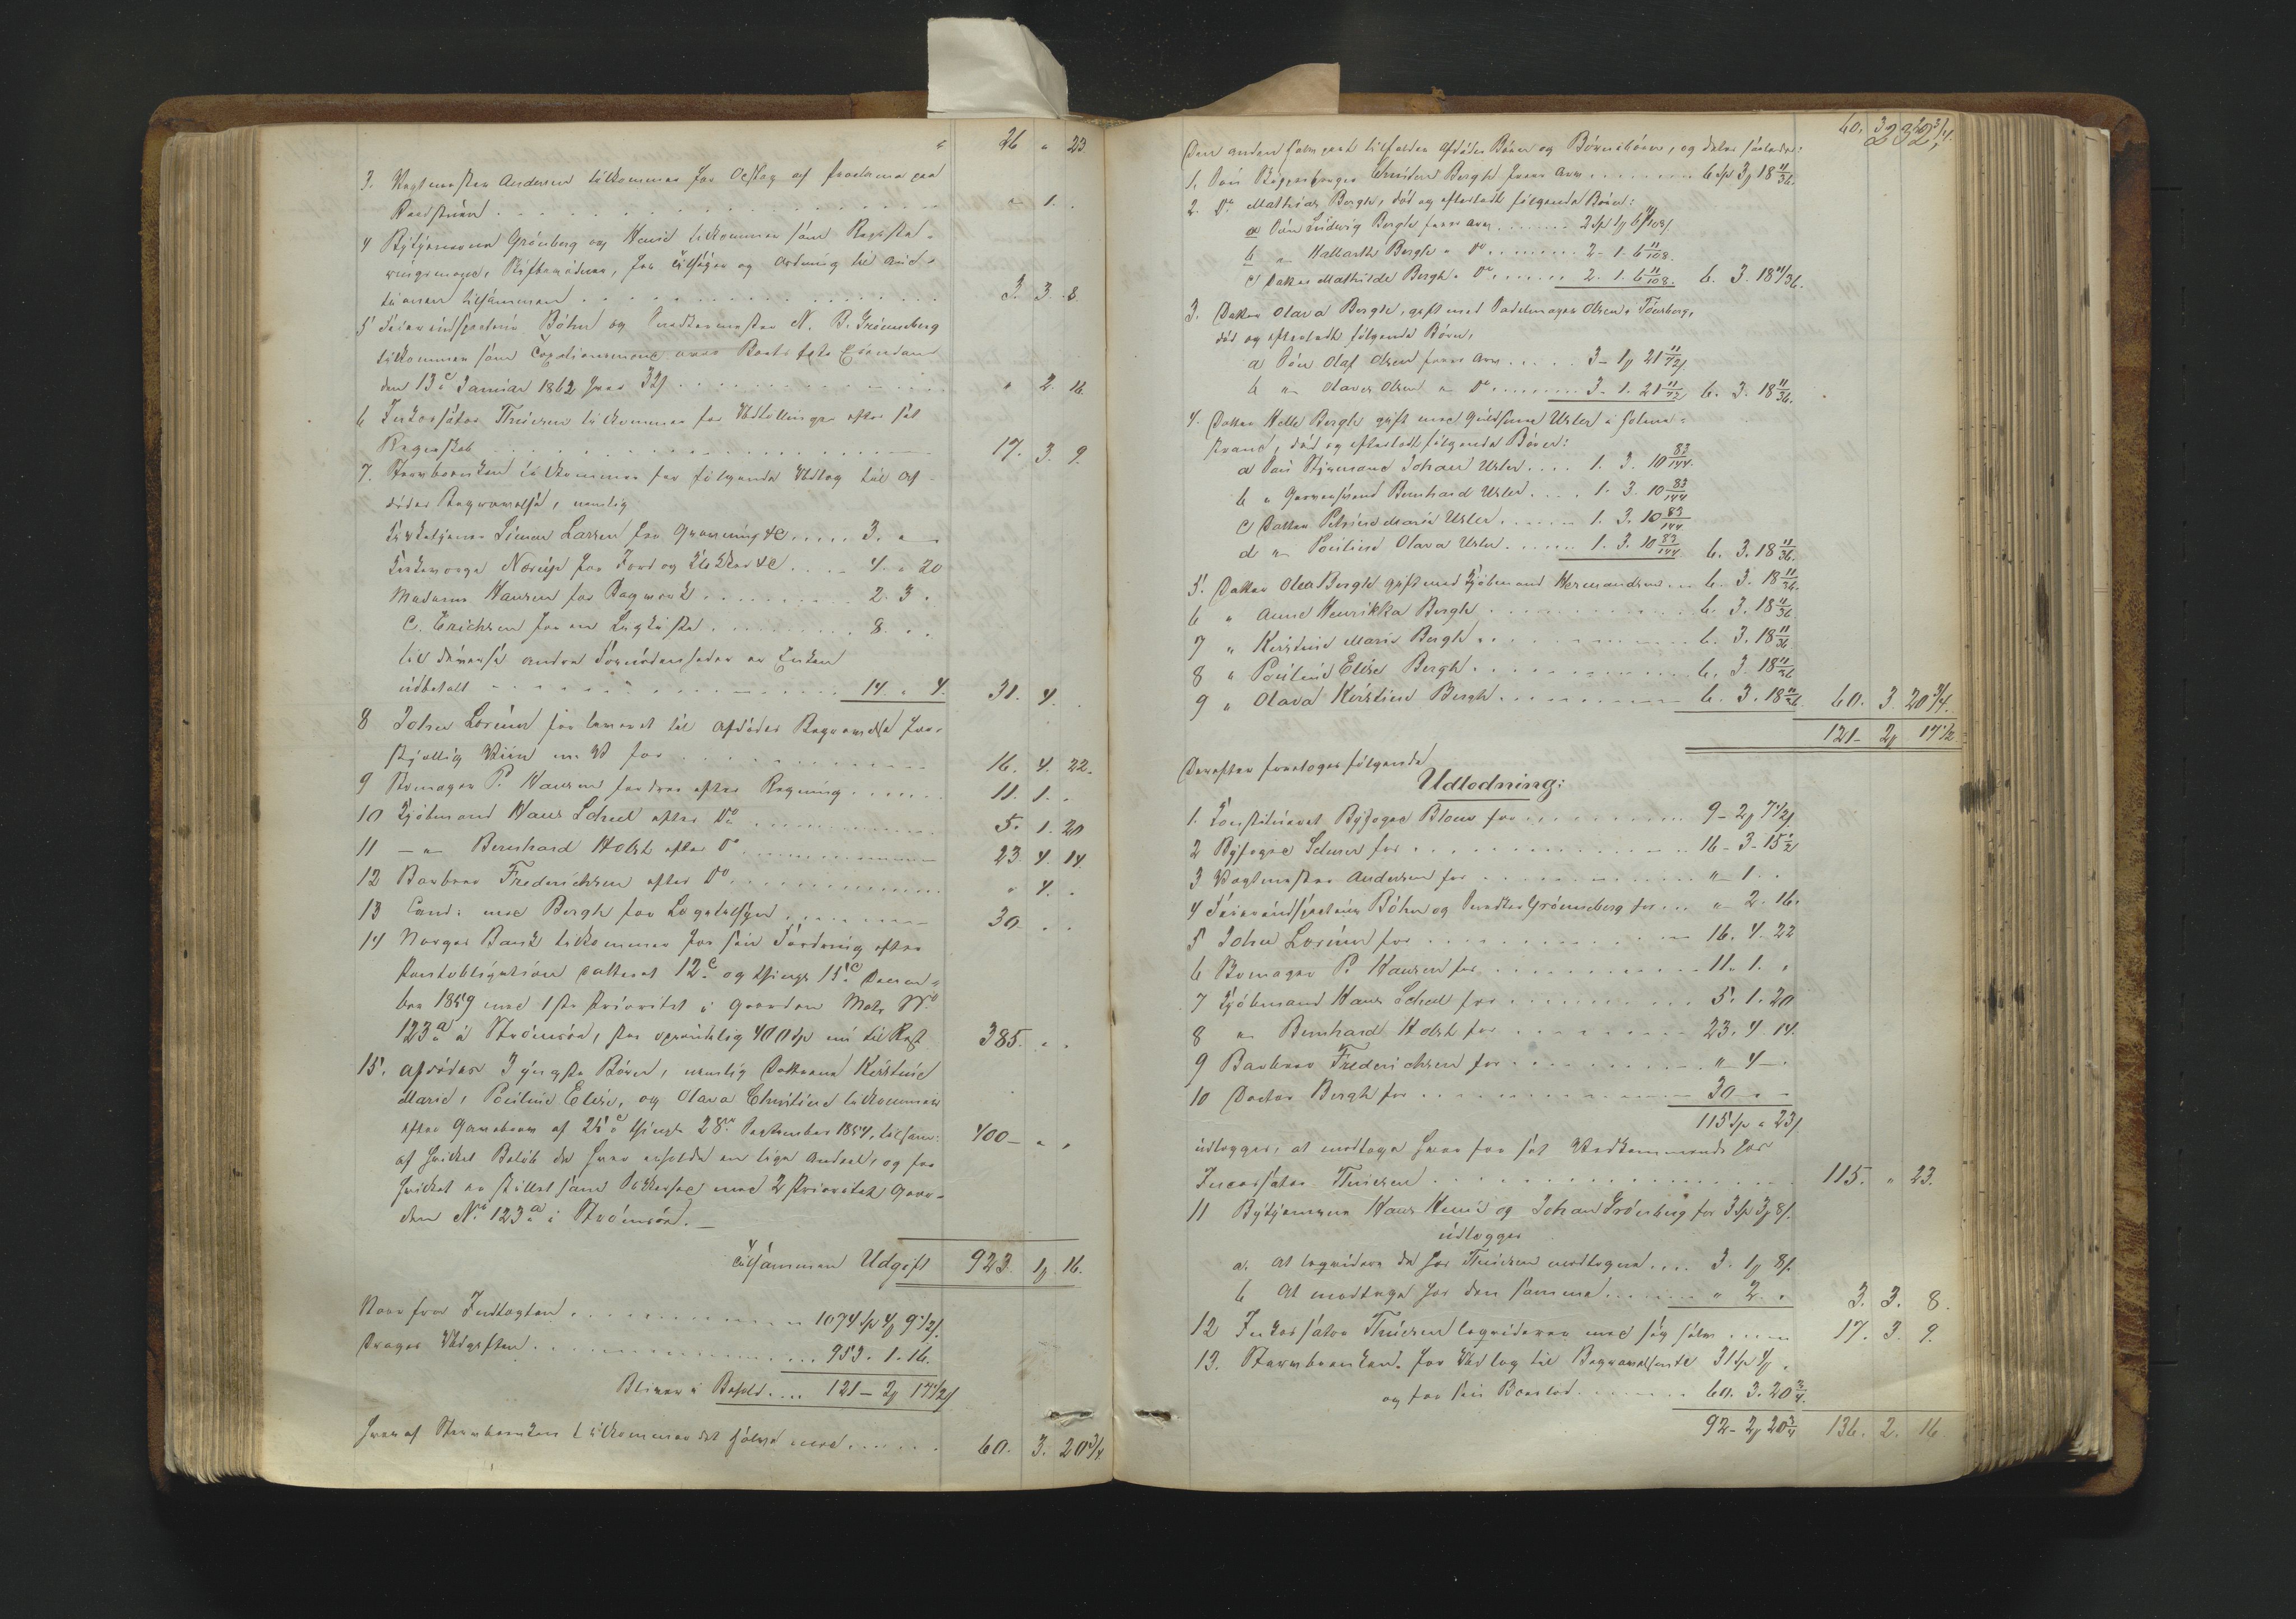 " 26 " 23.
3. Vagtmester Andersen tilkommer for Opslag af Proclama paa
Raadstuen . . . . " 1. .
4 Bytjenerne Grönberg og Henie tilkommer som Registe-
ringsmænd, Skiftevidner, for Tilsyn og Ordning til Auc-
tionen tilsammen . . . . 3. 3. 8.
5 Feierindspecteur Böhn og Snedkermester N. B. Grönneberg
tilkommer som Taxtionsmænd over Boets faste Eiendom
den 13de Januar 1862 hver 32ß . . . . " 2. 16.
6 Inkassator Thuesen tilkommer for Udtællinger efter sit
Regnskab . . . . 17. 3. 9.
7. Stervboenken tilkommer for følgende Udlæg til Af-
dødes Begravelse, nemlig
Kirketjener Simen Larsen for Gravning &c. . . . 3. "
Kirkeværge Nærup for Jord og Klokker &c. . . . 4. " 20
Madame Hansen for Bagværk . . . . 2. 3 .
C. Erichsen for en Ligkiste . . . . 8. . .
til diverse andre Fornødenheder er Enken
udbetalt . . . . 14. " 4. 31. 4. .
8 John Lorïner for leveret til Afdødes Begravelse for-
skjellig Viin m. V for . . . . 16. 4. 22.
9 Skomager P. Hansen fordrer efter Regning . . . . 11. 1. .
10 Kjöbmand Hans Schul efter Do . . . . 5. 1. 20
11 — " — Bernhard Holst efter Do . . . . 23. 4. 14.
12 Barberer Frederichsen efter Do . . . . " 4. .
13 Cand: med Bergh for Lægetilsyn . . . . 30 . .
14 Norges Bank tilkommer for sin Fordring efter
Pantobligation datteret 12te og thingl. 15de Decem-
ber 1859 med 1ste Prioritet i Gaarden Matr No
123a i Strömsöe, stor oprindelig 400 Sp nu til Rest 385. . .
15. Afdødes 3 yngste Børn, nemlig Døttrene Kirstine
Marie, Pouline Elise, og Olava Christine tilkommer
efter Gavebrev af 25de thingl. 28de September 1854, tilsam: 400 — " .
af hvilket Beløb de hver erholde en lige Andeel, og for
hvilket er stillet som Sikkerhed med 2 Prioritet Gaar-
den No 123a i Strömsöe. —
Tilsammen Udgift 923. 1ß. 16.
Naar fra Indtægten . . . . 1074 Sp 4ß 9 1/2ß.
Drages Udgiften . . . . 953. 1. 16.
Bliver i Behold . . . . 121 — 2ß 17 1/2ß
Hvoraf Stervboenken tilkommer det halve med . . . . 60. 3. 20 3/4
60. 3 20 3/4.
232,
Den anden halve part tilfalder Afdødes Børn og Børnebørn, og deles saaledes:
1. Søn Christian Bergh hvis Arv . . . . 6 Sp 3ß 18 11/36.
2. Do. Mathias Bergh, død og efterladt følgende Børn:
a Søn Ludvig Bergh hvis Arv . . . . 2 Sp 1ß 6 11/108ß.
b " Halbarth Bergh " Do . . . . 2 - 1. 6 11/108.
c) Datter Mathilde Bergh " Do . . . . 2. 1. 6 11/108. 6. 3. 18 11/36.
3. Datter Olava Bergh, gift med Sadelmager Olsen i Tönsberg,
død og efterladt følgende Børn,
a Søn Olaf Olsen hvis Arv . . . . 3 - 1ß 21 11/72ß
b " Olaves Olsen " Do . . . . 3. 1. 21 11/72 6. 3. 18 11/36.
4. Datter Helle Bergh gift med Guldsmed Usler i Holme-
strand, død og efterladt følgende Børn:
a Søn Styrmand Johan Usler . . . . 1. 3. 10 83/144.
b " Garversvend Bernhard Usler . . . . 1. 3. 10 83/144
c) Datter Petrine Marie Usler . . . . 1. 3. 10 83/144
d " Pouline Olava Usler . . . . 1. 3. 10 83/144 6. 3. 18 11/36.
5. Datter Olea Bergh gift med Kjöbmand Hermandsen . . . 6. 3. 18 11/36.
6 " Anne Henrikka Bergh . . . . 6. 3. 18 11/36
7 " Kirstine Marie Bergh . . . . 6. 3. 18 11/36
8 " Pouline Elise Bergh . . . . 6. 3 18 11/36
9 " Olava Kirstine Bergh . . . . 6. 3. 18 11/36. 60. 3. 20 3/4.
121 - 2ß 17 1/2.
Derefter foretoges følgende
Udlodning:
1. Constitueret Byfoged Blom for . . . . 9 - 2ß 7 1/2ß.
2 Byfoged Scheen for . . . . 16 - 3 - 15 1/2
3 Vagtmester Andersen for . . . . " 1 . .
4 Feierindspecteur Böhn og Snedker Grönneberg for . . . " 2. 16.
5 John Lorïner for . . . . 16. 4. 22
6 Skomager P. Hansen for . . . . 11. 1. .
7 Kjöbmand Hans Schul for . . . . 5. 1. 20
8 " Bernhard Holst for . . . . 23. 4 14.
9 Barberer Frederichsen for . . . . " 4 — .
10 Doctor Bergh for . . . . 30 - -
115 Sp " 23ß
udlægges, at modtage hver for sit Vedkommende hos
Incassator Thuesen . . . . 115. " 23.
11 Bytjenerne Hans Henie og Johan Grönberg for 3 Sp 3ß 8ß.
udlægges
a. At liqvidere de hos Thuesen modtagne . . . . 3. 1ß 8ß.
b At modtage hos den samme . . . . " 2. . 3. 3. 8.
12 Inkassator Thuesen liqviderer med sig selv . . . . 17. 3. 9.
13. Stervboenken. for Udlæg til Begravelsen &c 31 Sp 4ß .
og for sin Boeslod . . . . 60. 3. 20 3/4.
92 - 2ß 20 3/4 136. 2. 16.